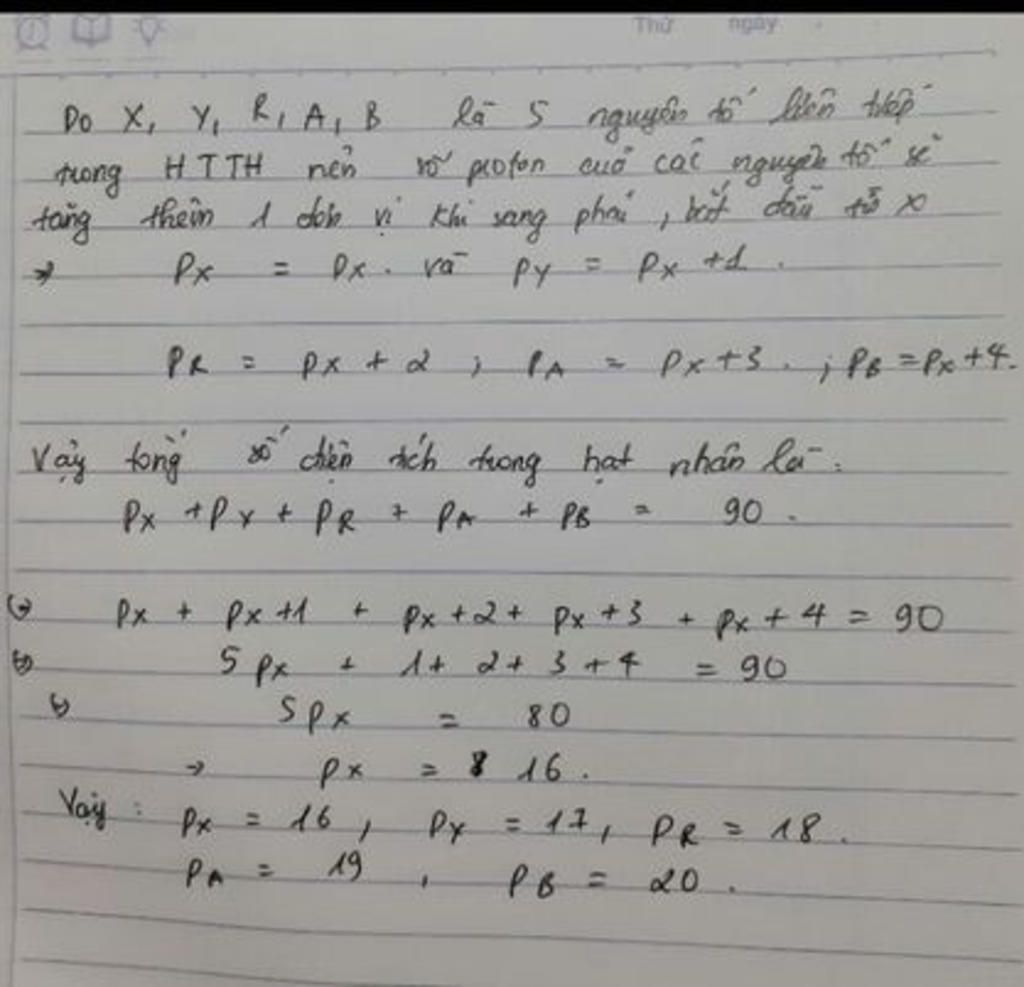 Thứ ngày
Do X, Y, R, A, B là 5 nguyên tố liên tiếp
trong HTTH nên số proton của các nguyên tố sẽ
tăng thêm 1 đơn vị khi sang phải, bắt đầu từ X
→ Px = Px. và PY = Px +1.
PR = Px + 2 ; PA = Px +3. ; PB = Px +4.
Vậy tổng số điện tích trong hạt nhân là:
Px + PY + PR + PA + PB = 90.
(→) Px + Px +1 + Px + 2 + Px +3 + Px + 4 = 90
↔ 5 Px + 1 + 2 + 3 + 4 = 90
↔ 5 Px = 80
→ Px = 16.
Vậy: Px = 16, PY = 17, PR = 18.
PA = 19, PB = 20.